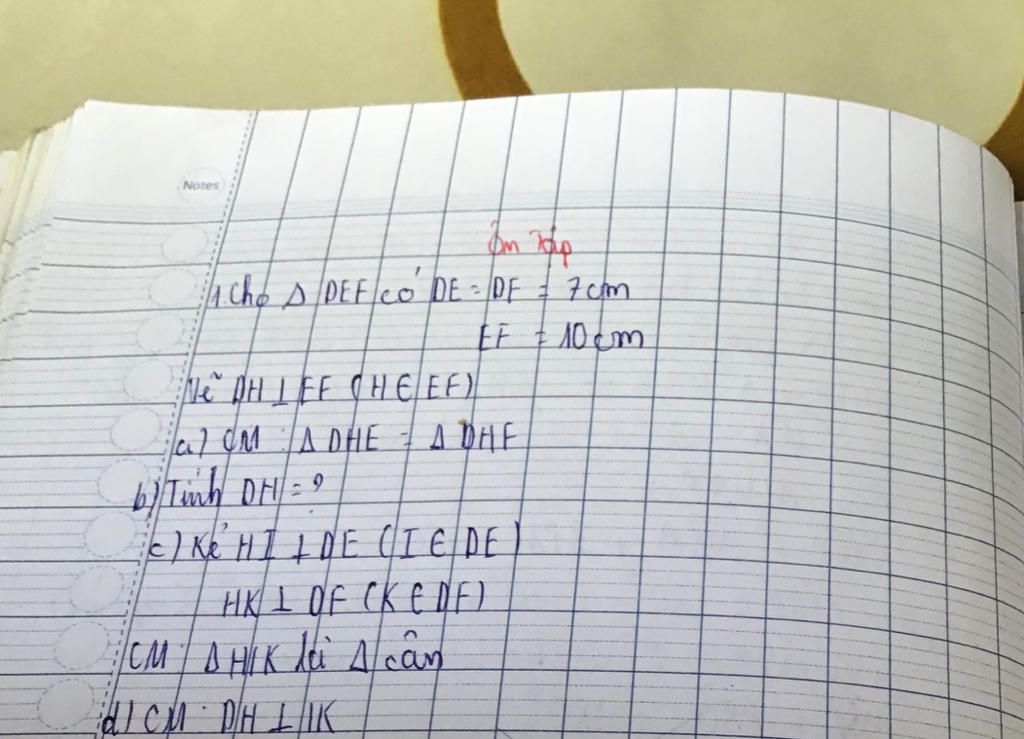 Notes
Ôn Tập
1. Cho Δ DEF có DE = DF = 7cm
EF = 10 cm
Vẽ DH ⊥ EF (H ∈ EF)
a) CM: Δ DHE = Δ DHF
b) Tính DH = ?
c) Kẻ HI ⊥ DE (I ∈ DE)
HK ⊥ DF (K ∈ DF)
CM: Δ HIK là Δ cân
d) CM: DH ⊥ IK